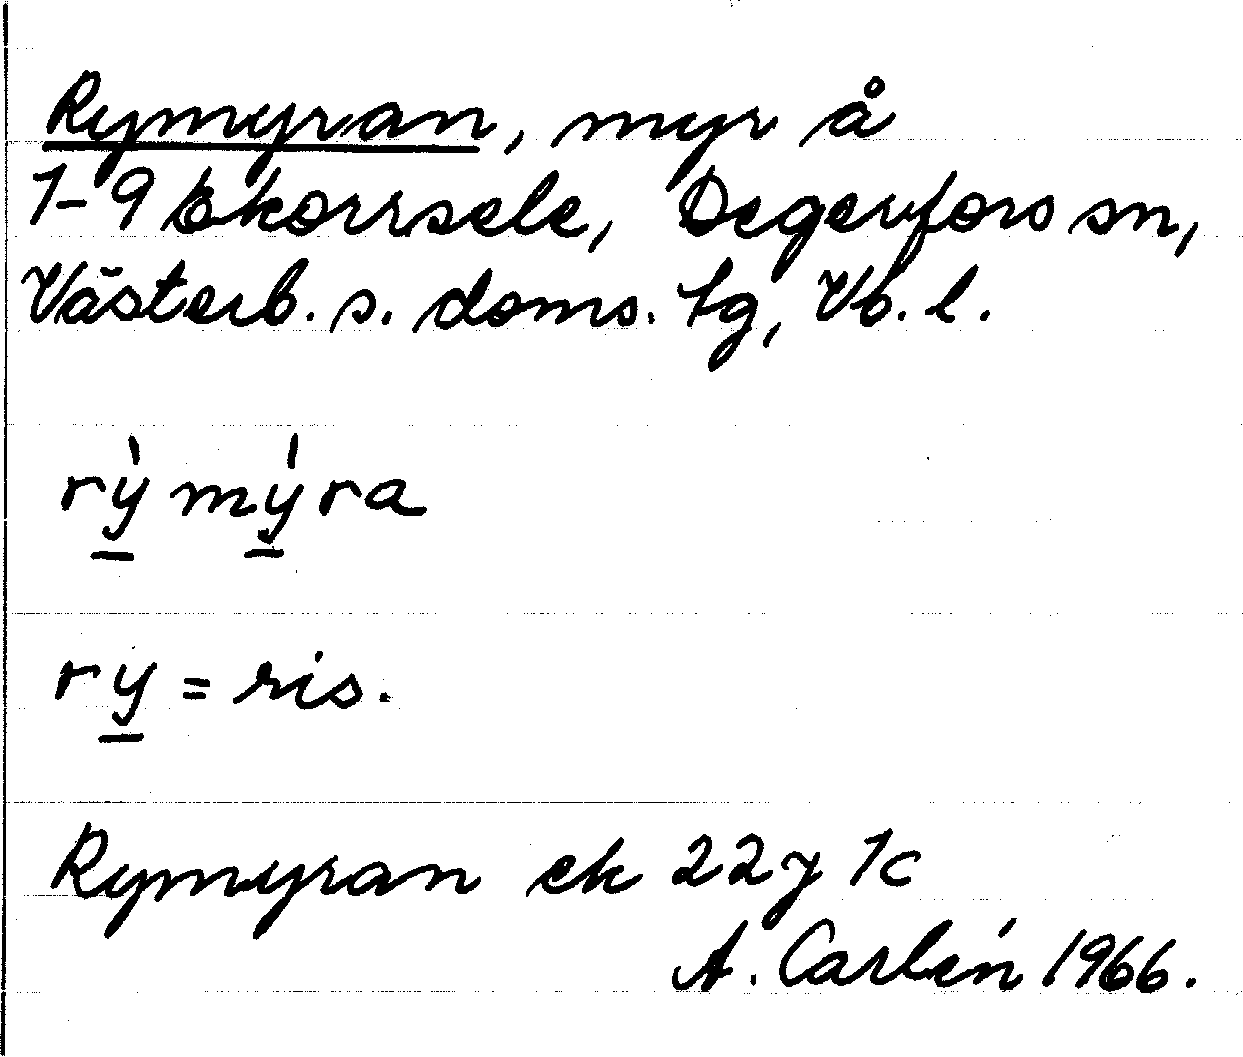 Rymyran, myr å
1-9 Ekorrsele, Degerfors sn,
Västerb. s. doms. tg, Vb. l.
rỳmýra
ry = ris.
Rymyran ek 22J 1c
A. Carlén 1966.